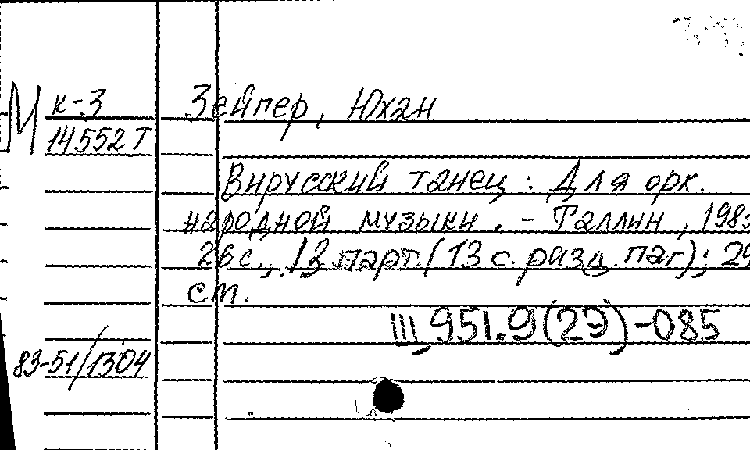 М к-3
14552 Т
Зейпер, Юхан
Вирусский танец : Для орк.
народной музыки. - Таллин, 198
26 с., 12 парт. (13 с. разд. паг); 29
ст.
III, 951.9(2Э)-085
83-51/1304